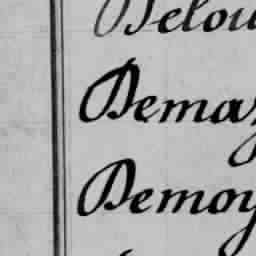 Delou
Demaz
Demoy